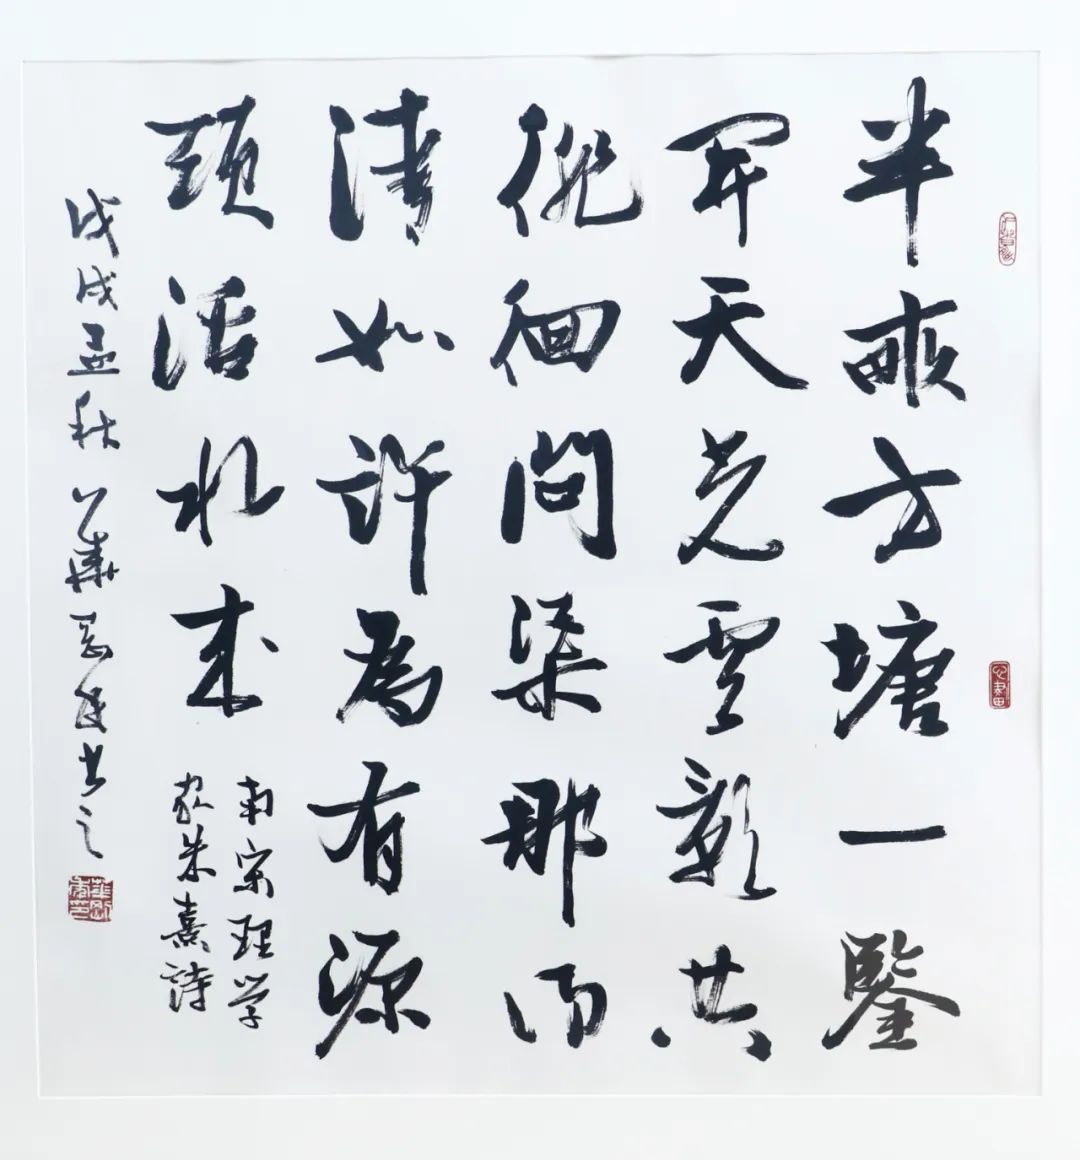 半畝方塘一鑒
開天光雲影共
徘徊問渠那得
清如許為有源
頭活水來
南宋理学
家朱熹詩
戊戌孟秋華书之